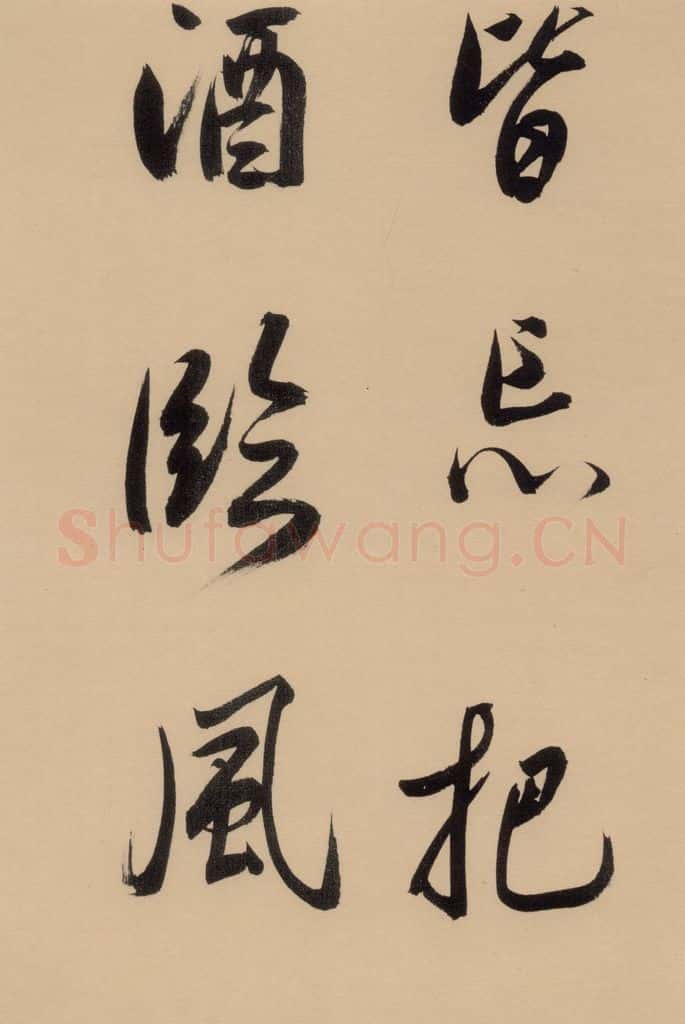 皆忘把
酒臨風
Shufawang.CN